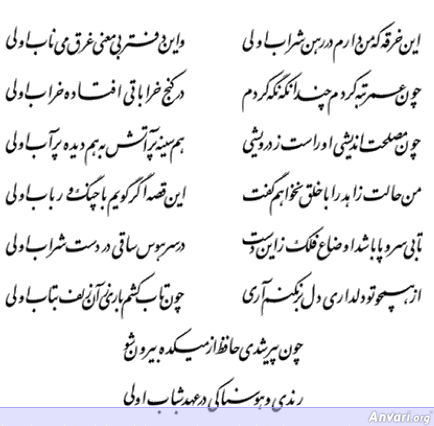 این خرقه که من دارم در رهن شراب اولی
واین دفتر بی معنی غرق می ناب اولی
چون عمر تبه کردم چندانکه نگه کردم
در کنج خراباتی افتاده خراب اولی
چون مصلحت اندیشی دور است ز درویشی
هم سینه پر آتش به هم دیده پر آب اولی
من حالت زاهد را با خلق نخواهم گفت
این قصه اگر گویم با چنگ و رباب اولی
تا بی سر و پا باشد اوضاع فلک زاین دست
در سر هوس ساقی در دست شراب اولی
از همچو تو دلداری دل بر نکنم آری
چون تاب کشم باری زآن زلف بتاب اولی
چون پیر شدی حافظ از میکده بیرون شو
رندی و هوسناکی در عهد شباب اولی
Anvari.org